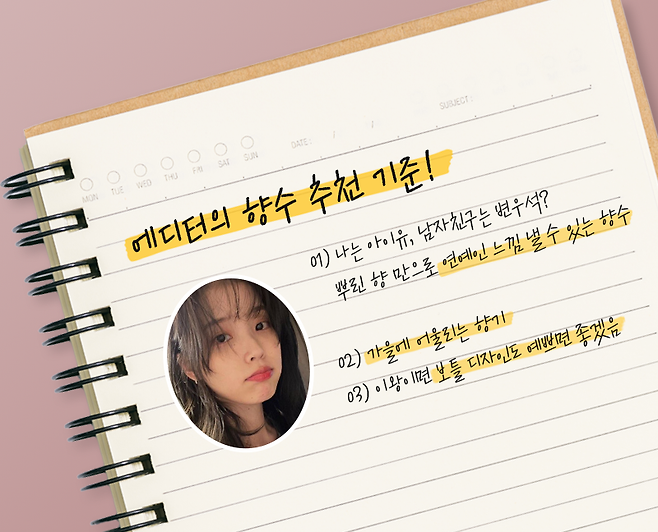 SUBJECT:
DATE: / /
MON TUE WED THU FRI SAT SUN
에디터의 향수 추천 기준!
01) 나는 아이유, 남자친구는 변우석?
뿌린 향 만으로 연예인 느낌 낼 수 있는 향수
02) 가을에 어울리는 향기
03) 이왕이면 보틀 디자인도 예쁘면 좋겠음